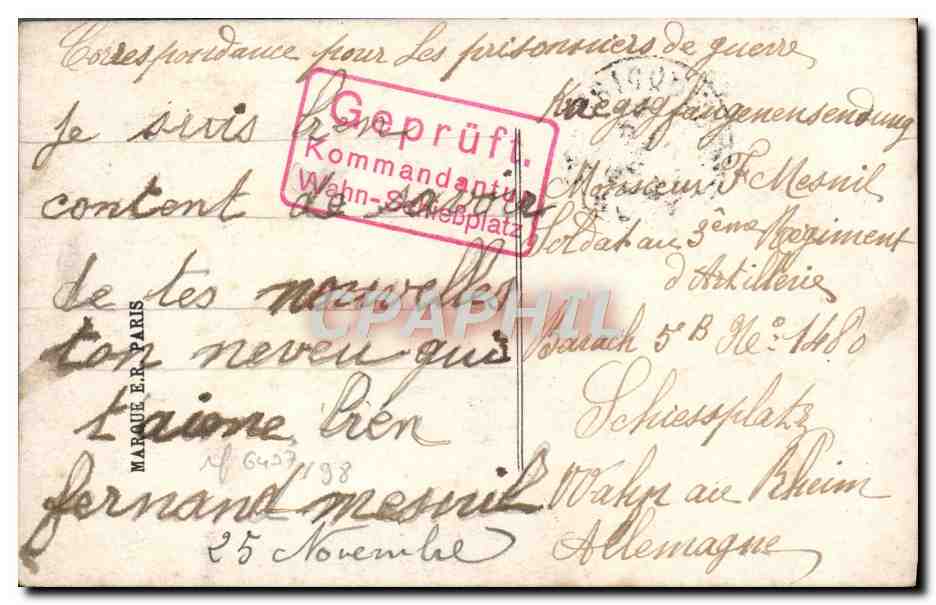 Correspondance pour Les prisonniers de guerre
je suis bien
content de savoir
de tes nouvelles
ton neveu qui
t'aione bien
fernand mesnil
25 Novembre
Geprüft.
Kommandantur
Wahn-Schießplatz
Kriegsgfangenensendung
Monsieur F Mesnil
Soldat au 3ème Régiment
d'Artillerie
Barach 5e B No: 1480
Schiessplatz
Wahn au Rheim
Allemagne
MARQUE E.R. PARIS
CPAPHIL